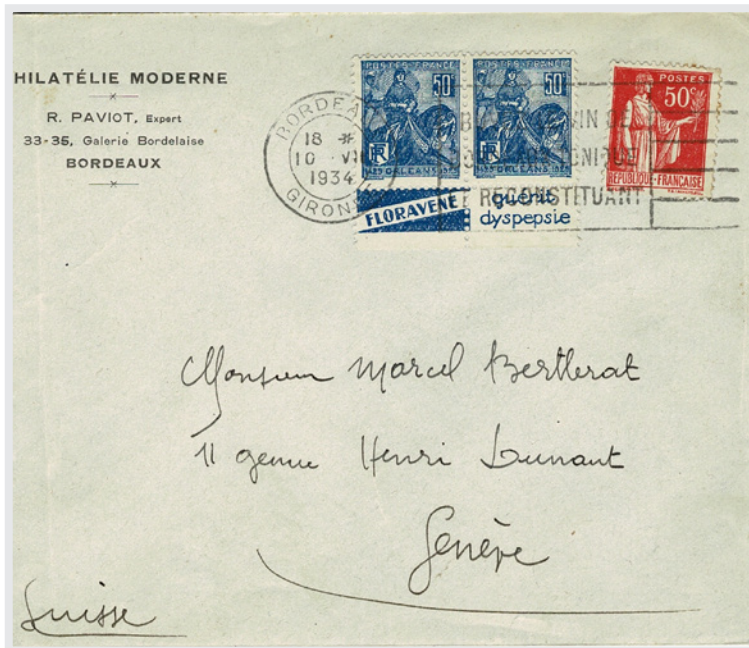 HILATÉLIE MODERNE
R. PAVIOT, Expert
33-35, Galerie Bordelaise
BORDEAUX
BORDEA
18
10 VI
1934
GIRON
POSTES FRANCE
50c
1429 ORLEANS 1929
RF
POSTES FRANCE
50c
1429 ORLEANS 1929
RF
FLORAVENE
guérit
dyspepsie
POSTES
50c
REPUBLIQUE FRANÇAISE
TONIQUE
ET RECONSTITUANT
Monsieur Marcel
11 Henri Dunant
Genève
Suisse